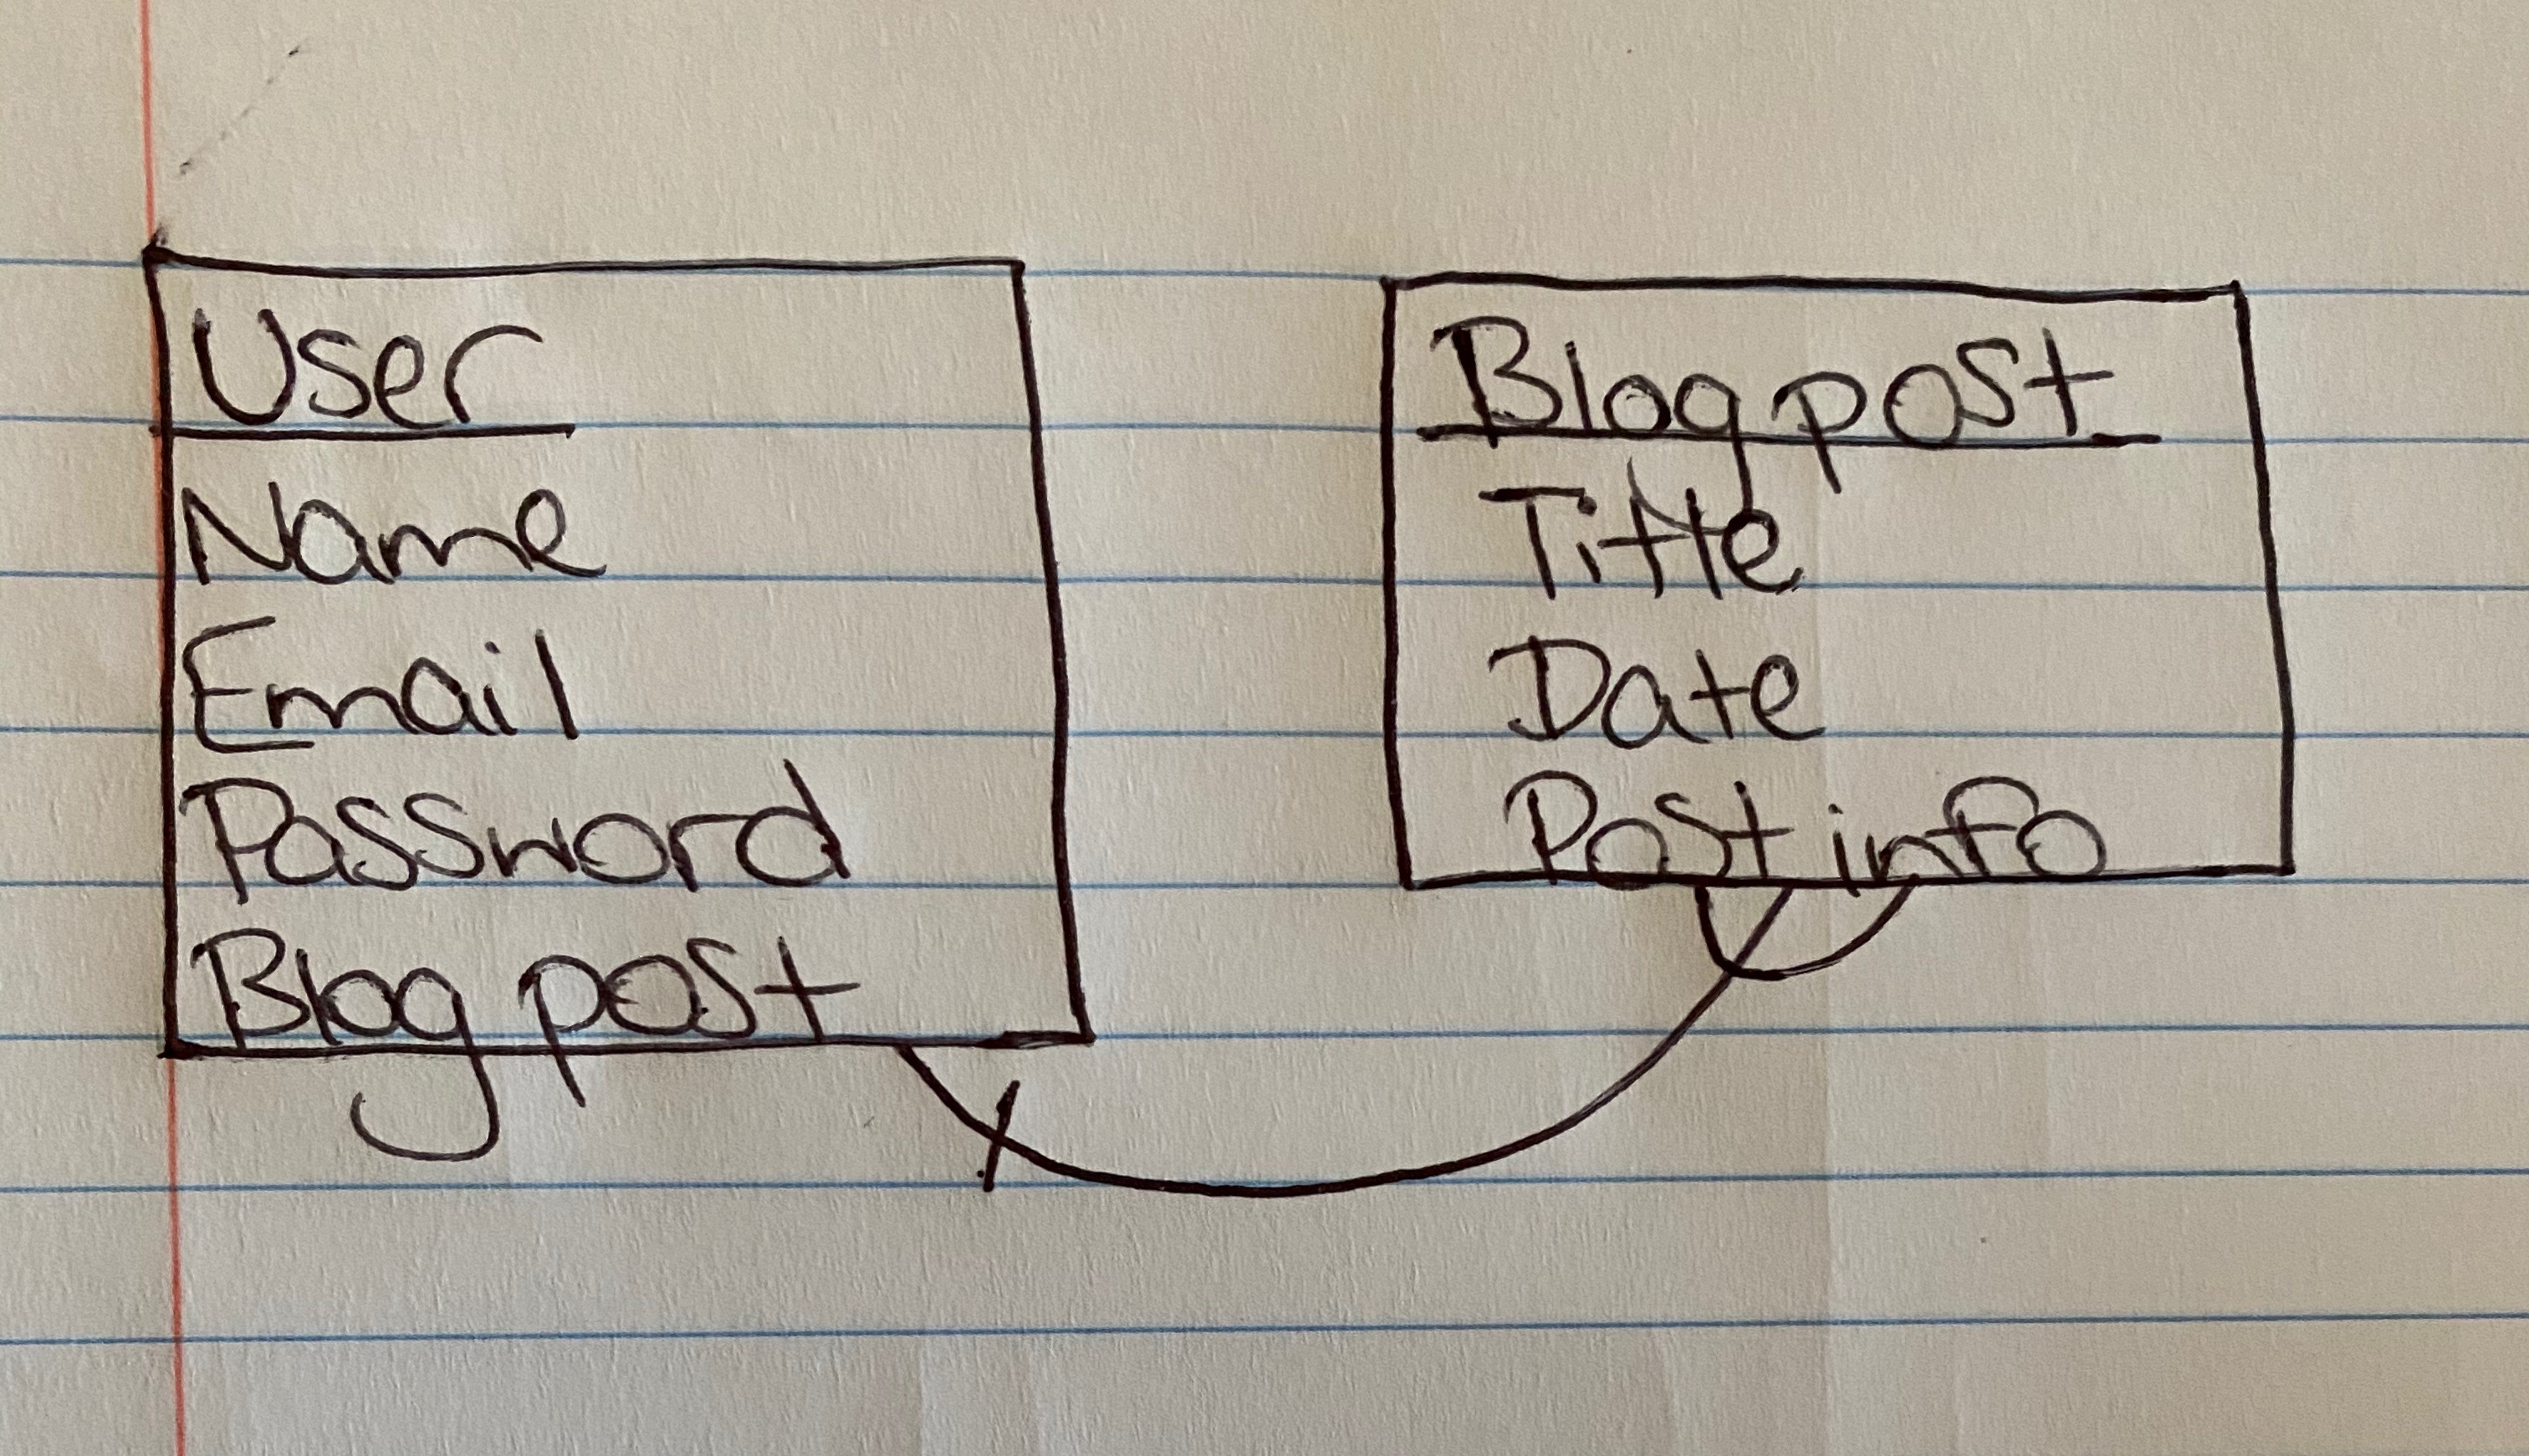 User
Name
Email
Password
Blog post
Blog post
Title
Date
Post info